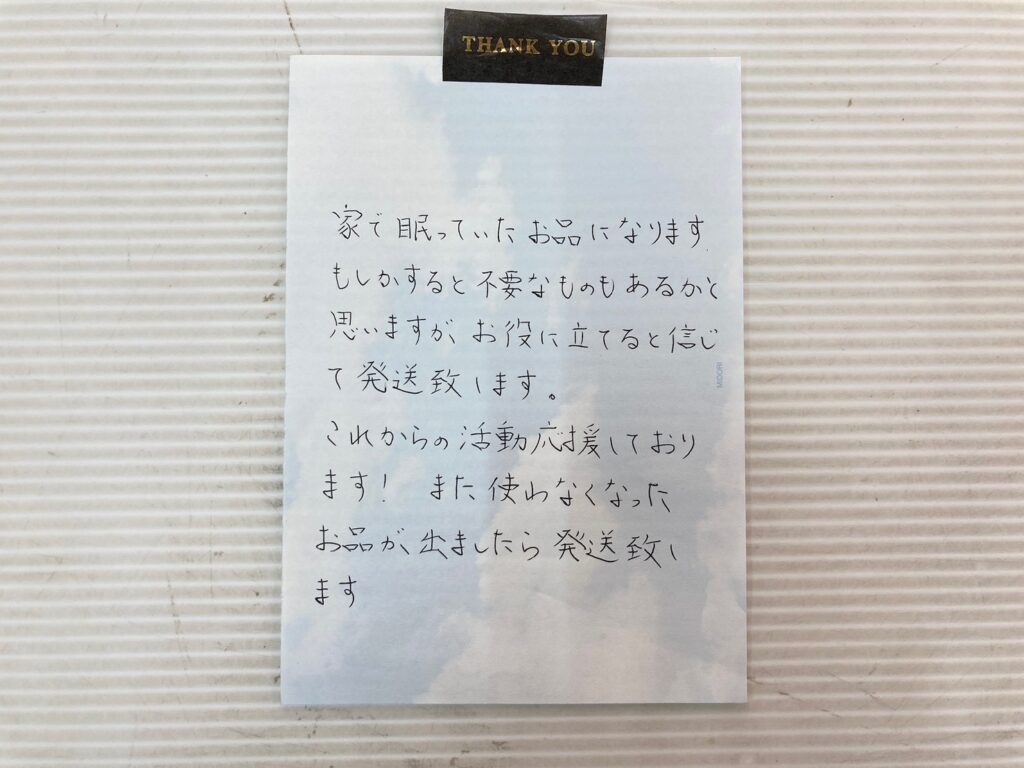 THANK YOU
家で眠っていたお品になります
もしかすると不要なものもあるかと
思いますが、お役に立てると信じ
て発送致します。
これからの活動応援しており
ます! また使わなくなった
お品が、出ましたら発送致し
ます
MIDORI